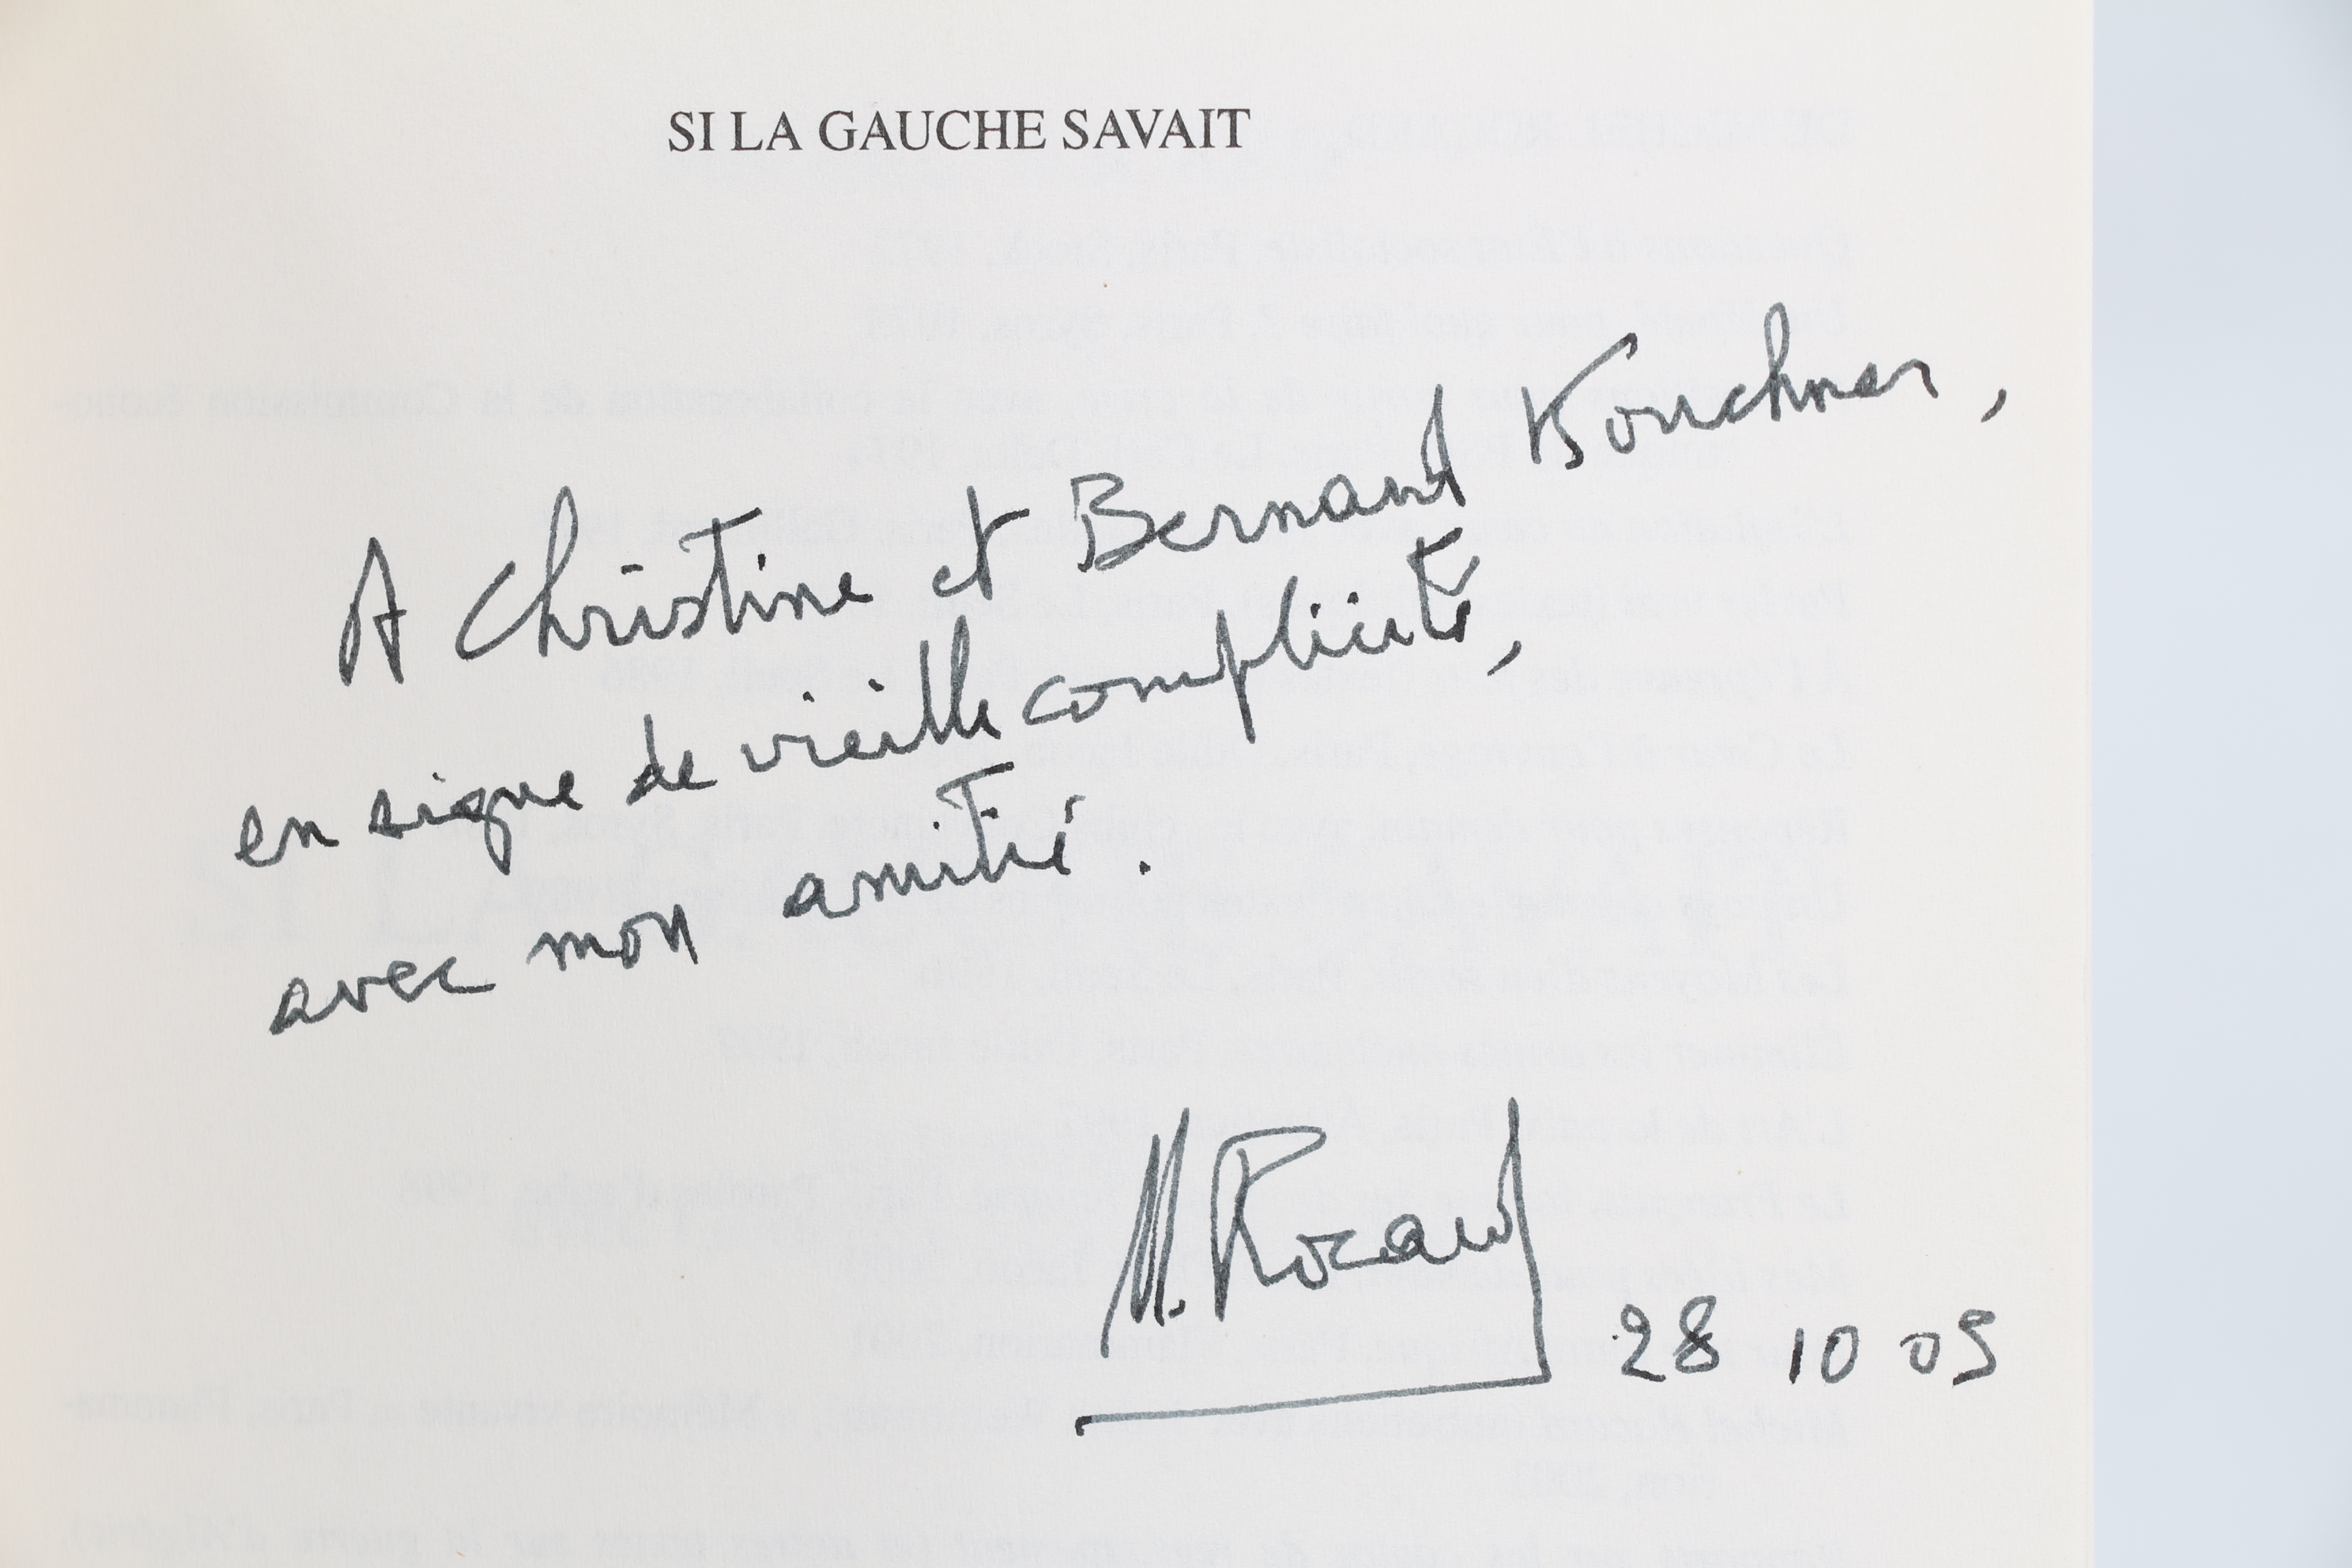 SI LA GAUCHE SAVAIT
A Christine et Bernard Kouchner,
en signe de vieille complicité,
avec mon amitié.
M. Rocard 28 10 05